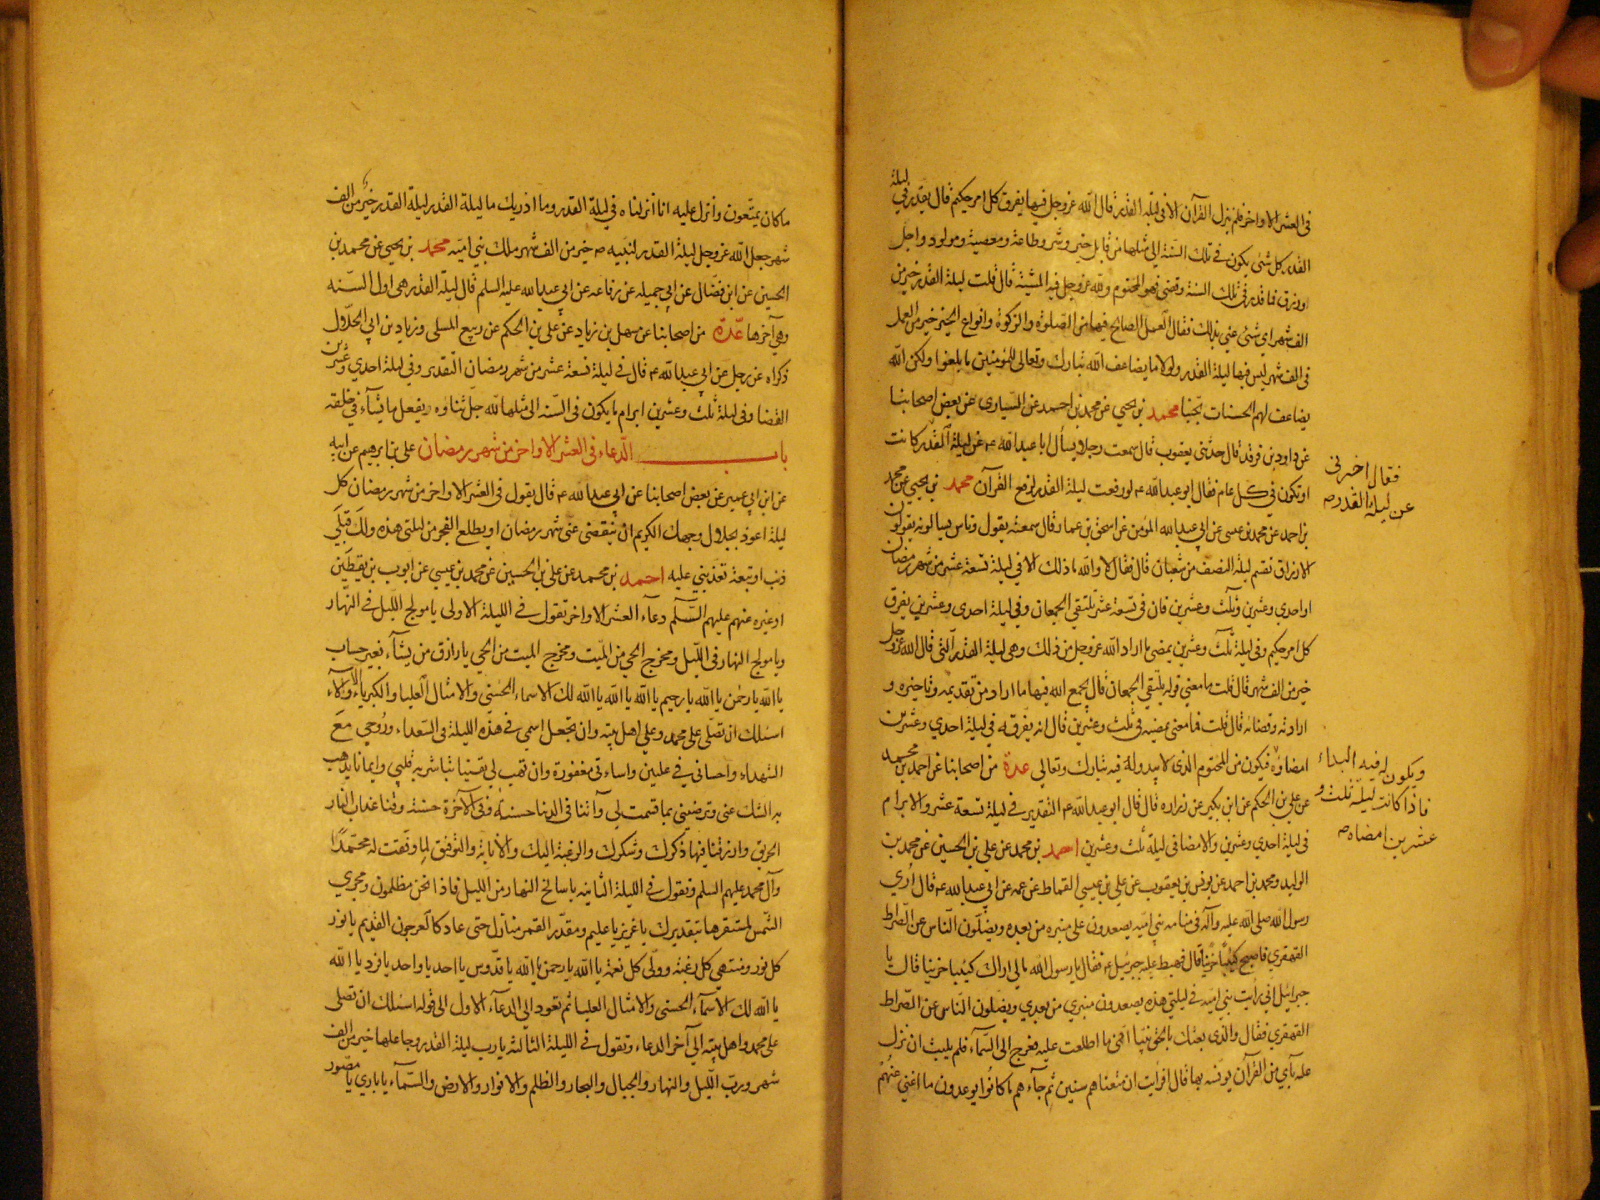 فى العشر الاواخر فلم ينزل القرآن الا فى ليلة القدر قال الله عز وجل فيها يفرق كل امر حكيم قال يقدر في ليلة
القدر كل شئ يكون فى تلك السنة الى مثلها من قابل خير وشر وطاعة ومعصية ومولود واجل
او رزق فما قدر فى تلك السنة وقضى فهو المحتوم ولله عز وجل فيه المشيئة قال قلت ليلة القدر خير من
الف شهر اى شئ عنى بذلك فقال العمل الصالح فيها من الصلوة والزكوة وانواع الخير خير من العمل
فى الف شهر ليس فيها ليلة القدر ولولا ما يضاعف الله تبارك وتعالى للمؤمنين ما بلغوا ولكن الله
يضاعف لهم الحسنات بحبنا محمد بن يحيى عن محمد بن احمد عن السيارى عن بعض اصحابنا
عن داود بن فرقد قال حدثنى يعقوب قال سمعت رجلا يسأل ابا عبد الله ع عن ليلة القدر كانت
فقال اخبرنى
عن ليلة القدر ص
او تكون فى كل عام فقال ابو عبد الله ع لو رفعت ليلة القدر لرفع القرآن محمد بن يحيى عن محمد
بن احمد عن محمد بن عيسى عن ابى عبد الله المؤمن عن اسحق بن عمار قال سمعته يقول وناس يسالونه يقولون
الارزاق تقسم ليلة النصف من شعبان قال فقال لا والله ما ذلك الا فى ليلة تسعة عشر من شهر رمضان
او احدى وعشرين وثلث وعشرين فان فى تسعة عشر يلتقى الجمعان وفى ليلة احدى وعشرين يفرق
كل امر حكيم وفى ليلة ثلث وعشرين يمضى ما اراد الله عز وجل من ذلك وهى ليلة القدر التى قال الله عز وجل
خير من الف شهر قال قلت ما معنى قوله يلتقى الجمعان قال يجمع الله فيها ما اراد من تقديمه وتاخيره و
ارادته وقضائه قال قلت فما معنى يمضيه فى ثلث وعشرين قال انه يفرقه فى ليلة احدى وعشرين
ويكون له فيه البداء
فاذا كانت ليلة ثلث و
عشرين امضاه ص
امضاؤه فيكون من المحتوم الذى لا يبدو له فيه تبارك وتعالى عدة من اصحابنا عن احمد بن محمد
عن على بن الحكم عن ابن بكير عن زراره قال قال ابو عبد الله ع التقدير فى ليلة تسعة عشر والابرام
فى ليلة احدى وعشرين والامضا فى ليلة ثلث وعشرين احمد بن محمد عن على بن الحسين عن محمد بن
الوليد ومحمد بن احمد عن يونس بن يعقوب عن على بن عيسى القماط عن عمه عن ابى عبد الله ع قال ارى
رسول الله صلى الله عليه وآله فى منامه بنى اميه يصعدون على منبره من بعده ويضلون الناس عن الصراط
القهقرى فاصبح كئيبا حزينا قال فهبط عليه جبرئيل ع فقال يا رسول الله مالى اراك كئيبا حزينا قال يا
جبرائيل انى رأيت بنى اميه فى ليلتى هذه يصعدون منبرى من بعدى ويضلون الناس عن الصراط
القهقرى فقال والذى بعثك بالحق نبيا انى ما اطلعت عليه فعرج الى السمآء فلم يلبث ان نزل
عليه بآي من القرآن يونسه بها قال افرأيت ان متعناهم سنين ثم جآءهم ما كانوا يوعدون ما اغنى عنهم
ما كانوا يمتعون وانزل عليه انا انزلناه فى ليلة القدر وما ادريك ما ليلة القدر ليلة القدر خير من الف
شهر جعل الله عز وجل ليلة القدر لنبيه ص خير من الف شهر ملك بنى اميه محمد بن يحيى عن محمد بن
الحسين عن ابن فضال عن ابى جميله عن رفاعه عن ابى عبد الله عليه السلم قال ليلة القدر هى اول السنه
وهى آخرها عدة من اصحابنا عن سهل بن زياد عن على بن الحكم عن ربيع المسلى وزياد بن ابى الحلال
ذكراه عن رجل عن ابى عبد الله ع قال فى ليلة تسعة عشر من شهر رمضان التقدير وفى ليلة احدى وعشرين
القضا وفى ليلة ثلث وعشرين ابرام ما يكون فى السنه الى مثلها لله جل ثناوه يفعل ما يشآء فى خلقه
باب الدعاء فى العشر الاواخر من شهر رمضان على بن ابرهيم عن ابيه
عن ابن ابى عمير عن بعض اصحابنا عن ابى عبد الله ع قال يقول فى العشر الاواخر من شهر رمضان كل
ليلة اعوذ بجلال وجهك الكريم ان ينقضى عنى شهر رمضان او يطلع الفجر من ليلتى هذه ولك قبلى
ذنب او تبعة تعذبنى عليه احمد بن محمد عن على بن الحسين عن محمد بن عيسى عن ايوب بن يقطين
او غيره عنهم عليهم السلم دعآء العشر الاواخر تقول فى الليلة الاولى يا مولج الليل فى النهار
ويا مولج النهار فى الليل ومخرج الحى من الميت ومخرج الميت من الحى يا رازق من يشآء بغير حساب
يا الله يا رحمن يا الله يا رحيم يا الله يا الله يا الله لك الاسماء الحسنى والامثال العليا والكبرياء والآلاء
اسئلك ان تصلى على محمد وعلى اهل بيته وان تجعل اسمى فى هذه الليلة فى السعداء وروحى مع
الشهداء واحسانى فى عليين واسائتى مغفورة وان تهب لى يقينا تباشر به قلبى وايمانا يذهب
به الشك عنى وترضينى بما قسمت لى وآتنا فى الدنيا حسنة وفى الآخرة حسنة وقنا عذاب النار
الحريق وارزقنا فيها ذكرك وشكرك والرغبة اليك والانابة والتوفيق لما وفقت له محمدا
وآل محمد عليهم السلم وتقول فى الليلة الثانيه يا سالخ النهار من الليل فاذا نحن مظلمون ومجرى
الشمس لمستقرها بتقديرك يا عزيز يا عليم ومقدر القمر منازل حتى عاد كالعرجون القديم يا نور
كل نور ومنتهى كل رغبة وولى كل نعمة يا الله يا رحمن يا الله يا قدوس يا احد يا واحد يا فرد يا الله
يا الله لك الاسمآء الحسنى والامثال العليا ثم تعود الى الدعآء الاول الى قوله اسئلك ان تصلى
على محمد واهل بيته الى آخر الدعاء وتقول فى الليلة الثالثه يا رب ليلة القدر وجاعلها خيرا من الف
شهر ورب الليل والنهار والجبال والبحار والظلم والانوار والارض والسمآء يا بارى يا مصور